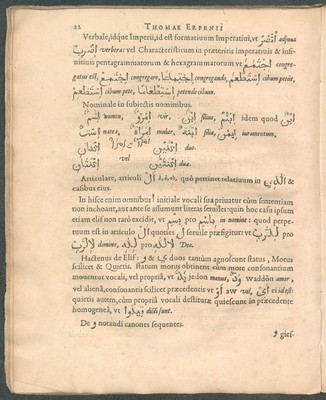 22 THOMAE ERPENII
Verbale, idque Imperii, id est formativum Imperativi, ut اُنْصُرْ adjuva
اُشْرِبْ verbera: vel Characteristicum in præteritis imperativis & infi-
nitivis pentagrammatorum & hexagrammatorum ut اِجْتَمَعَ congre-
gatus est, اِجْتَمِعْ congregare, اِجْتِمَاعًا congregando, اِسْتَطْعَمَ cibum petiit,
اِسْتَطْعِمْ cibum pete, اِسْتِطْعَامًا petendo cibum.
Nominale in subjectis nominibus.
اِسْمٌ nomen, اِمْرُؤٌ vir, اِبْنٌ filius, اِبْنُمٌ idem quod اِبْنٌ
اِسْتٌ nates, اِمْرَأَةٌ mulier, اِبْنَةٌ filia, اِيْمُنٌ juramentum,
اِثْنَانِ اِثْنَيْنِ duo.
اِثْنَتَانِ vel اِثْنَتَيْنِ duæ.
Articulare, articuli اَلْ ὁ, ἡ, τὸ, quod pertinet relativum اَلَّذِي &
casibus ejus.
In hisce enim omnibus ا initiale vocali sua privatur cùm sententiam
non inchoant, aut ante se assumunt literas serviles: quin hoc casu ipsum
etiam elif non rarò excidit, ut بِسْمِ pro بِاِسْمِ in nomine: quod perpe-
tuum est in articulo اَلْ quoties ل servile præfigitur: ut لِلرَّبِّ pro
لِاَلرَّبِّ domino, لِلّٰهِ pro لِاَللّٰهِ Deo.
Hactenus de Elif: و & ي duos tantùm agnoscunt status, Motus
scilicet & Quietis. statum motus obtinent cùm more consonantium
moventur vocali, ut يَدٌ jedon manus, وَدٌّ waddon amor,
vel alienâ, consonantis scilicet præcedentis ut اَوْ aw vel, اَيْ ei id est:
quietis autem, cùm propriâ vocali destitutæ quiescunt in præcedente
homogeneâ, ut قِيلُوا dicti sunt.
De و notandi canones sequentes.
و quies-